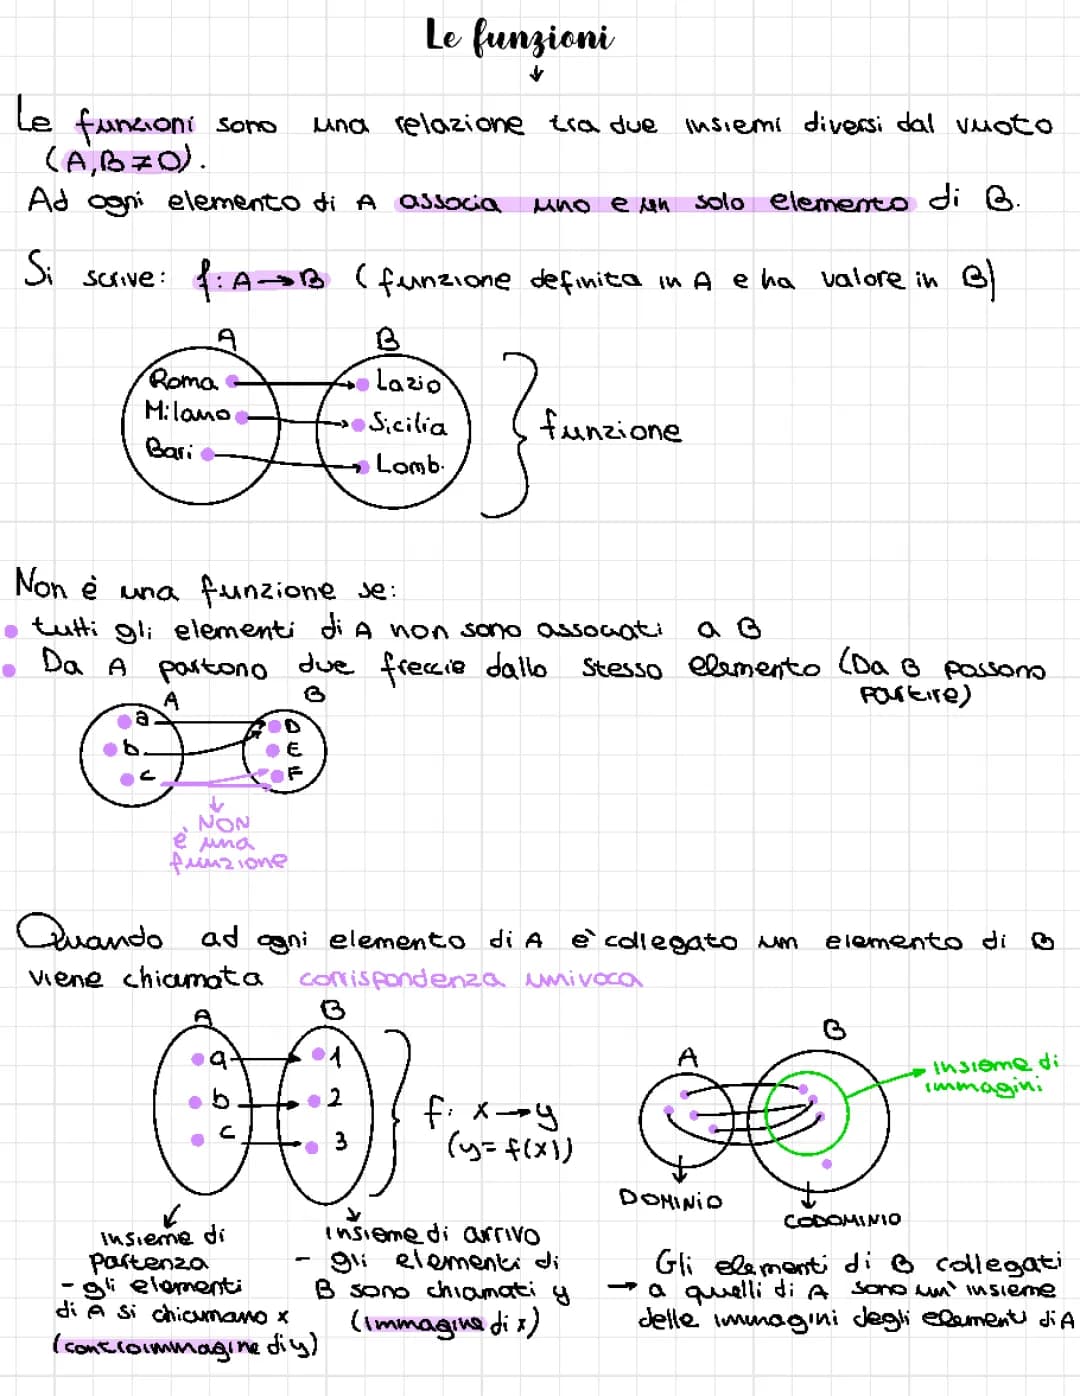 Le funzioni
Le funzioni sono una relazione tra due insiemi diversi dal vuoto
(A,B≠0).
Ad ogni elemento di A associa uno e un solo elemento di B.
Si scrive: f: A→B (funzione definita in A e ha valore in B)
A B
Roma Lazio
Milano Sicilia
Bari Lomb.
funzione
Non è una funzione se:
• tutti gli elementi di A non sono associati a B
• Da A partono due freccie dallo stesso elemento (Da B possono
partire)
A B
a D
b E
c F
NON
è una
funzione
Quando ad ogni elemento di A è collegato un elemento di B
viene chiamata corrispondenza univoca
A B
a 1
b 2
c 3
f: x→y
(y=f(x))
A B
insieme di
immagini
DOMINIO
CODOMINIO
insieme di
partenza
- gli elementi
di A si chiamano x
(controimmagine di y)
insieme di arrivo
- gli elementi di
B sono chiamati y
(immagine di x)
Gli elementi di B collegati
→ a quelli di A sono un' insieme
delle immagini degli elementi di A